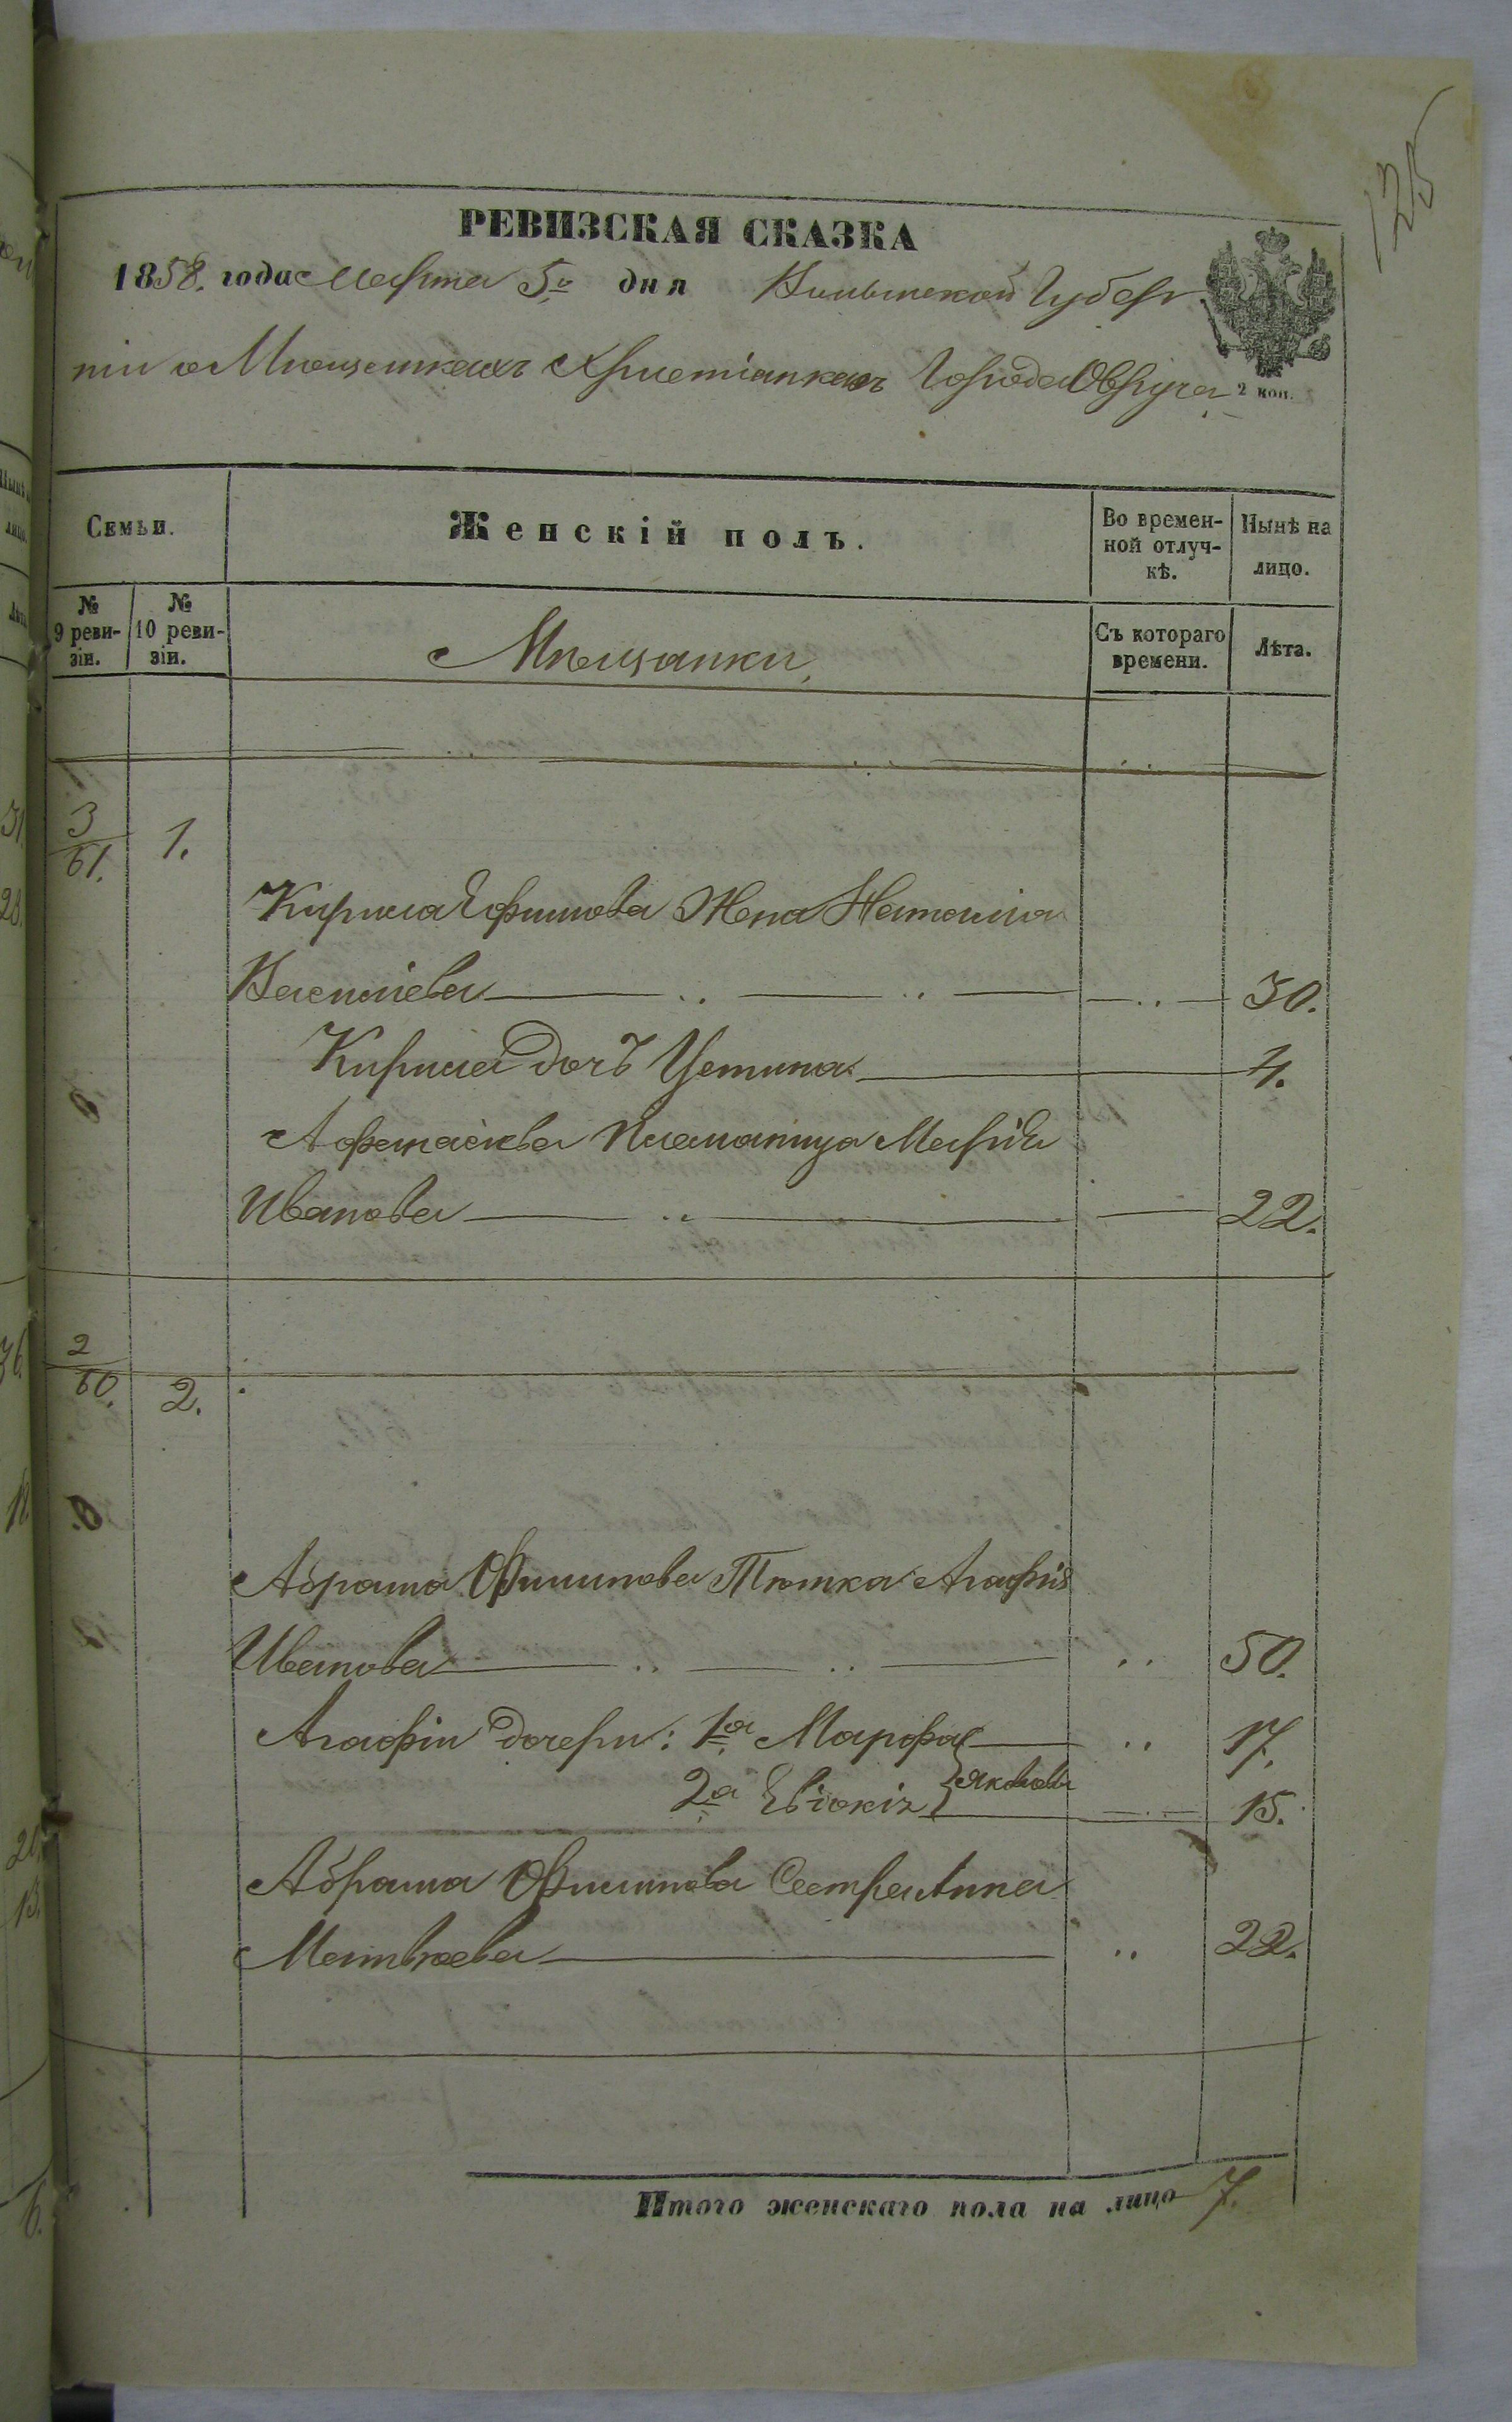 125
РЕВИЗСКАЯ СКАЗКА
1858. года Марта 5го дня Волынской Губер
ніи о Мѣщанкахъ Христіанкахъ Города Овруча
2 коп.
Семьи.
Женскій полъ.
Во времен-
ной отлуч-
кѣ.
Нынѣ на
лицо.
№
9 реви-
зіи.
№
10 реви-
зіи.
Мѣщанки
Съ котораго
времени.
Лѣта.
3/61. 1.
Кирила Ефимова Жена Наталия
Василіева 30.
Кирила дочь Устина 4.
Племяница Марія
Иванова 22.
2/60. 2.
Абрама Филипова Тѣтка Агафія
Иванова 50.
Агафіи дочери: 1я Марфа 17.
2я Евдокія Яковлевы 15.
Абрама Филипова Сестра Анна
Матвѣева 22.
Итого женскаго пола на лицо 7.